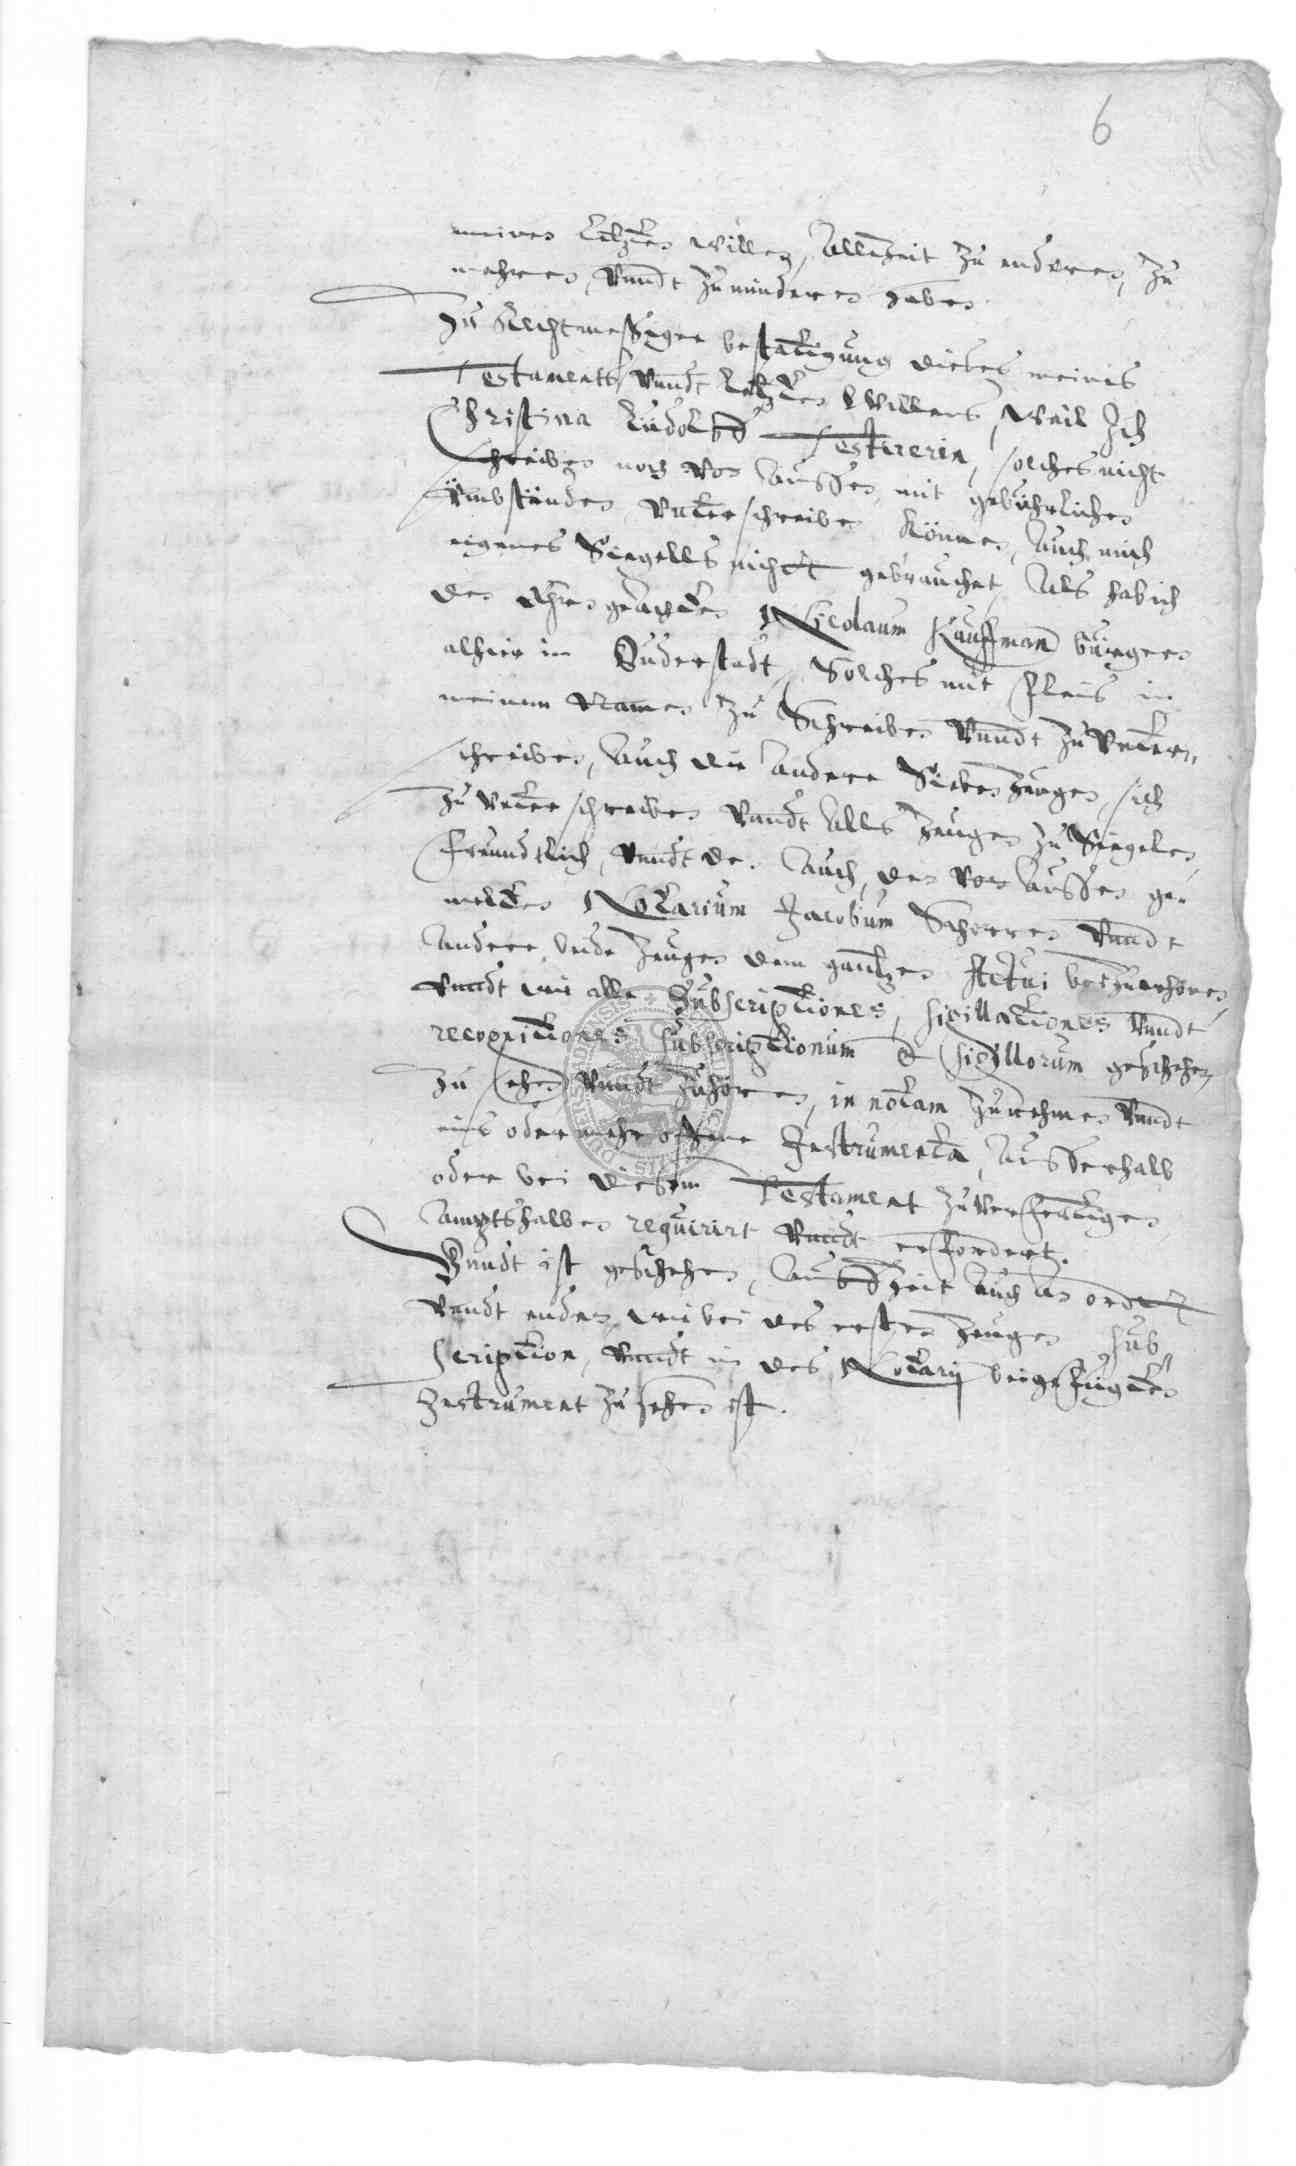 6
meines letzten willen, Allezeit zu enderen, zu
mehren, vnndt zu mindern haben
Zu Rechtmeßiger bestatigung dieses meines
Testaments vnndt letzten Willens, weil Ich
Christina Ludolffs Testirerin, solches nicht
schreiben noch von Aussen, mit gebührlichen
Vmbständen vnterschreiben könne, Auch mich
eigenes Siegells nicht gebrauchet, Als hab ich
den Ehrngeachten Nicolaum Kauffman bürgern
alhier in Duderstadt, Solches mit fleis in
meinem Namen zu Schreiben vnndt zu vnter„
schreiben, Auch die Andere Sieben zeugen, sich
zu vnterschreiben vnndt Alls zeugen zu Siegelen
freundtlich, vnndt den Auch, den von Aussen ge„
melten Notarium Jacobum vnndt
Andere beide zeugen dem gantzen Actui beizuwohnen
vnndt wie alle Subscriptiones, sigillationes vnndt
recognitiones subscriptionum & sigillorum geschehen
zu sehen vnndt zuhören, in notam zunehmen vnndt
eins oder mehr offene Instrumenta, Ausserhalb
oder bei diesem Testament zuverfertigen
Amptshalben requirirt vnndt erfordert.
Vnndt ist geschehen, Auff Zeit Auch An orden
vnndt enden, wie bei des ersten zeugen Sub„
scription, vnndt in des Notarij beigefügten
Instrument zu sehen ist.